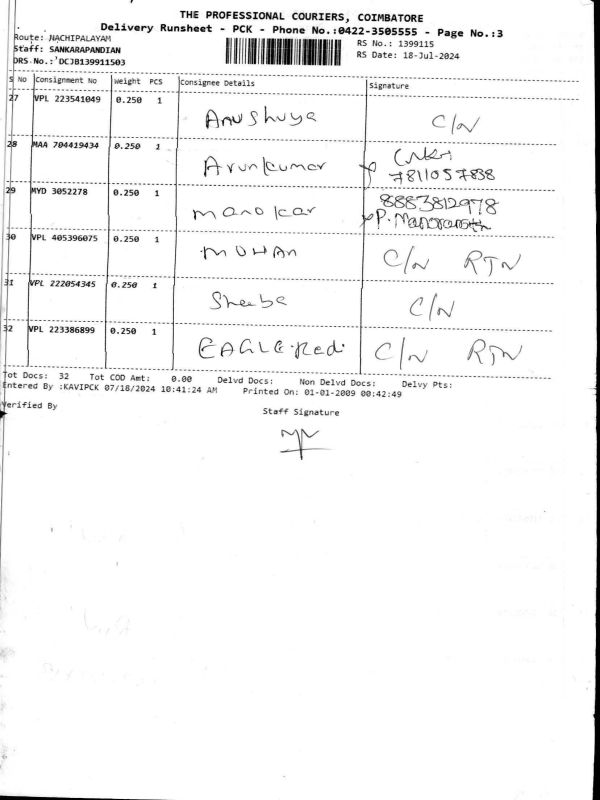 THE PROFESSIONAL COURIERS, COIMBATORE
Delivery Runsheet - PCK - Phone No.:0422-3505555 - Page No.:3
Route: NACHIPALAYAM RS No.: 1399115
Staff: SANKARAPANDIAN RS Date: 18-Jul-2024
DRS No.: DCJB139911503
S No Consignment No Weight PCS Consignee Details Signature
27 VPL 223541049 0.250 1
Anushuya C/N
28 MAA 704419434 0.250 1
Arunkumar
7811057838
29 MYD 3052278 0.250 1 8883812978
manokar P.
30 VPL 405396075 0.250 1
MOHAN C/N RTN
31 VPL 222054345 0.250 1
Sheeba C/N
32 VPL 223386899 0.250 1
EAGLE Red. C/N RTN
Tot Docs: 32 Tot COD Amt: 0.00 Delvd Docs: Non Delvd Docs: Delvy Pts:
Entered By :KAVIPCK 07/18/2024 10:41:24 AM Printed On: 01-01-2009 00:42:49
Verified By Staff Signature